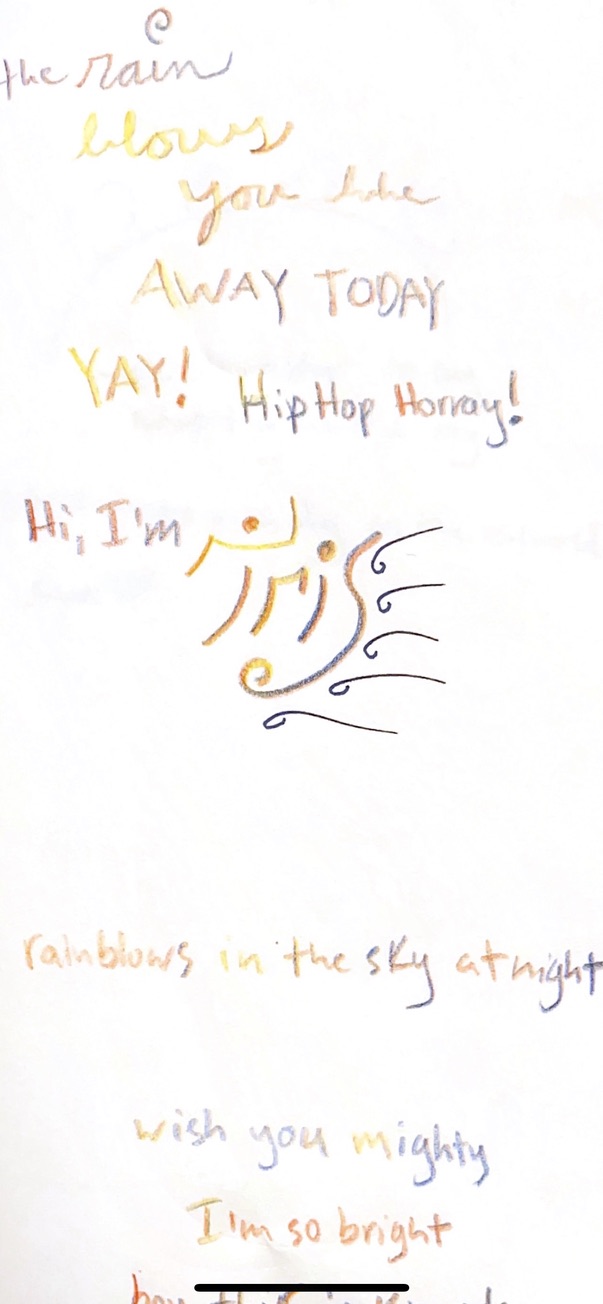 the rain
blows
you
AWAY TODAY
YAY! Hip Hop Horray!
Hi, I'm Iris
rainblows in the sky at night
wish you mighty
I'm so bright